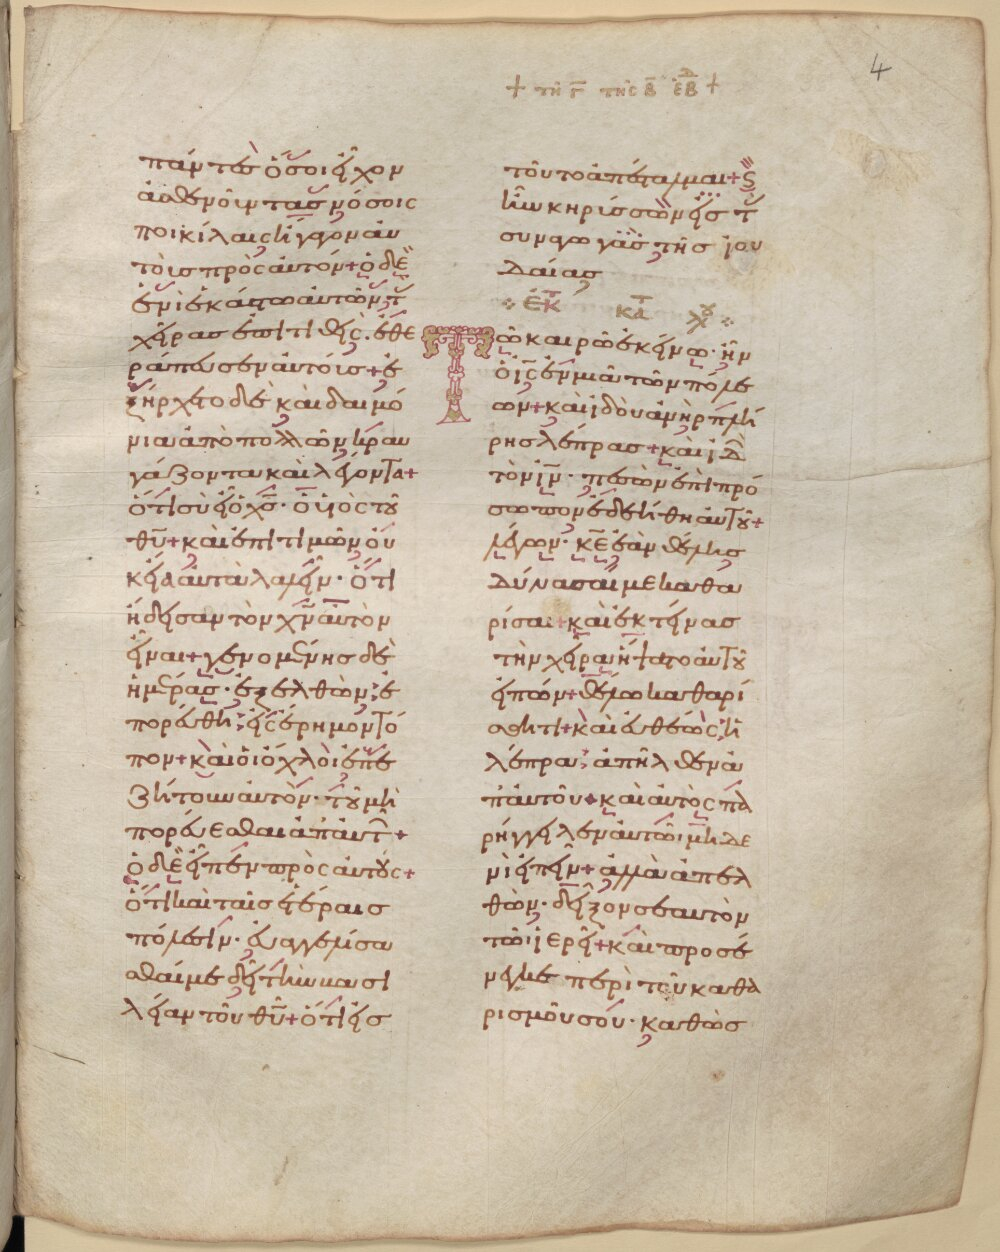 4
+ τῆ γ̅ τῆς β̅ ἑβδ +
πάντες ὅσοι εἶχον
ἀσθενοῦντας νόσοις
ποικίλαις ἤγαγον αὐ
τοὺς πρὸς αὐτόν + ὁ δὲ
ἑνὶ ἑκάστω αὐτῶν τ
χεῖρας ἐπιτιθεὶς . ἐθε
ράπευσεν αὐτούς + ἐ
ξήρχετο δὲ καὶ δαιμό
νια ἀπὸ πολλῶν κραυ
γάζοντα καὶ λέγοντα +
ὅτι σὺ εἶ ὁ χ̅ς̅ · ὁ υἱὸς τοῦ
θ̅υ̅ + καὶ ἐπιτιμῶν οὐ
κ εἴα αὐτὰ λαλεῖν · ὅτι
ἤδεισαν τὸν χ̅ν̅ αὐτὸν
εἶναι + γενομένης δὲ
ἡμέρας · ἐξελθὼν ἐ
πορεύθη εἰς ἔρημον τό
πον + καὶ οἱ ὄχλοι ἐπε
ζήτουν αὐτόν · τοῦ μὴ
πορεύεσθαι ἀπ' αὐτ +
ὁ δὲ εἶπεν πρὸς αὐτούς +
ὅτι καὶ ταῖς ἑτέραις
πόλεσιν · εὐαγγελίσα
σθαί με δεῖ τὴν βασι
λείαν τοῦ θ̅υ̅ + ὅτι εἰς
τοῦτο ἀπέσταλμαι + ϗ
ἦν κηρύσσων εἰς τ
συναγωγὰς τῆς ἰου
δαίας
ἐκ κατ λουκ
Τῶ καιρῶ ἐκείνω · ἦν
ὁ ι̅ς̅ ἐν μιᾶ τῶν πόλε
ων + καὶ ἰδοὺ ἀνὴρ πλή
ρης λέπρας + καὶ ἰδ
τὸν ι̅ν̅ · πεσὼν ἐπὶ πρό
σωπον ἐδεήθη αὐτοῦ +
λέγων · κ̅ε̅ ἐὰν θέλης
δύνασαί με καθα
ρίσαι + καὶ ἐκτείνας
τὴν χεῖρα ἥψατο αὐτοῦ
εἰπών + θέλω καθαρί
σθητι + καὶ εὐθέως ἡ
λέπρα ἀπῆλθεν ἀ
π' αὐτοῦ + καὶ αὐτὸς πα
ρήγγειλεν αὐτῶ μηδε
νὶ εἰπεῖν + ἀλλὰ ἀπελ
θὼν · δεῖξον σεαυτὸν
τῶ ἱερεῖ + καὶ προσέ
νεγκε περὶ τοῦ καθα
ρισμοῦ σου · καθὼς